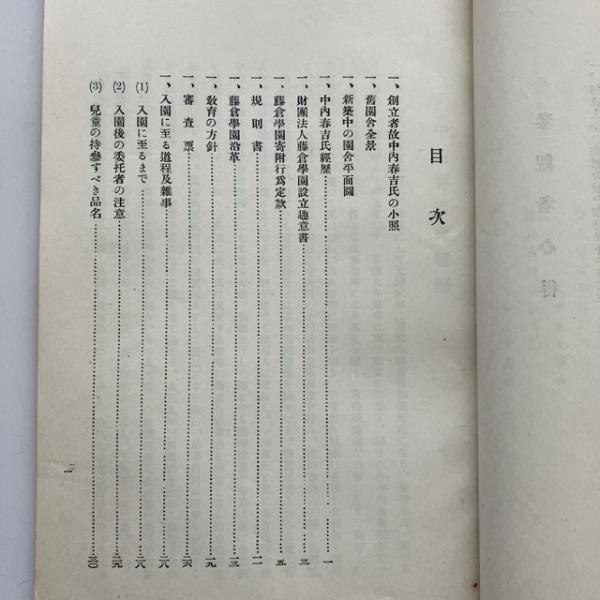 目次
一、創立者故中內春吉氏の小照
一、舊園舍全景
一、新築中の園舍平面圖
一、中內春吉氏經歷……一
一、財團法人藤倉學園設立趣意書……三
一、藤倉學園寄附行爲定款……五
一、規則書……一一
一、藤倉學園沿革……一三
一、敎育の方針……一九
一、審査票……二六
一、入園に至る道程及雜事……二八
(1) 入園に至るまで……二八
(2) 入園後の委托者の注意……二九
(3) 兒童の持參すべき品名……三〇